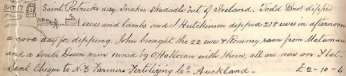 17 Saint Patricks day Snakes skedaddle out of Ireland. Todd Bros dipped
ewes and lambs and I Hutchinson dipped 258 ewes in afternoon
a good day for dipping. John brought the 22 ewe & Romney ram from
and a South Down ram owned by O'Halloran with them, all are now on Flat.
Sent Cheque to N.Z Farmers Fertilizing Co. Auckland. £2-10-6